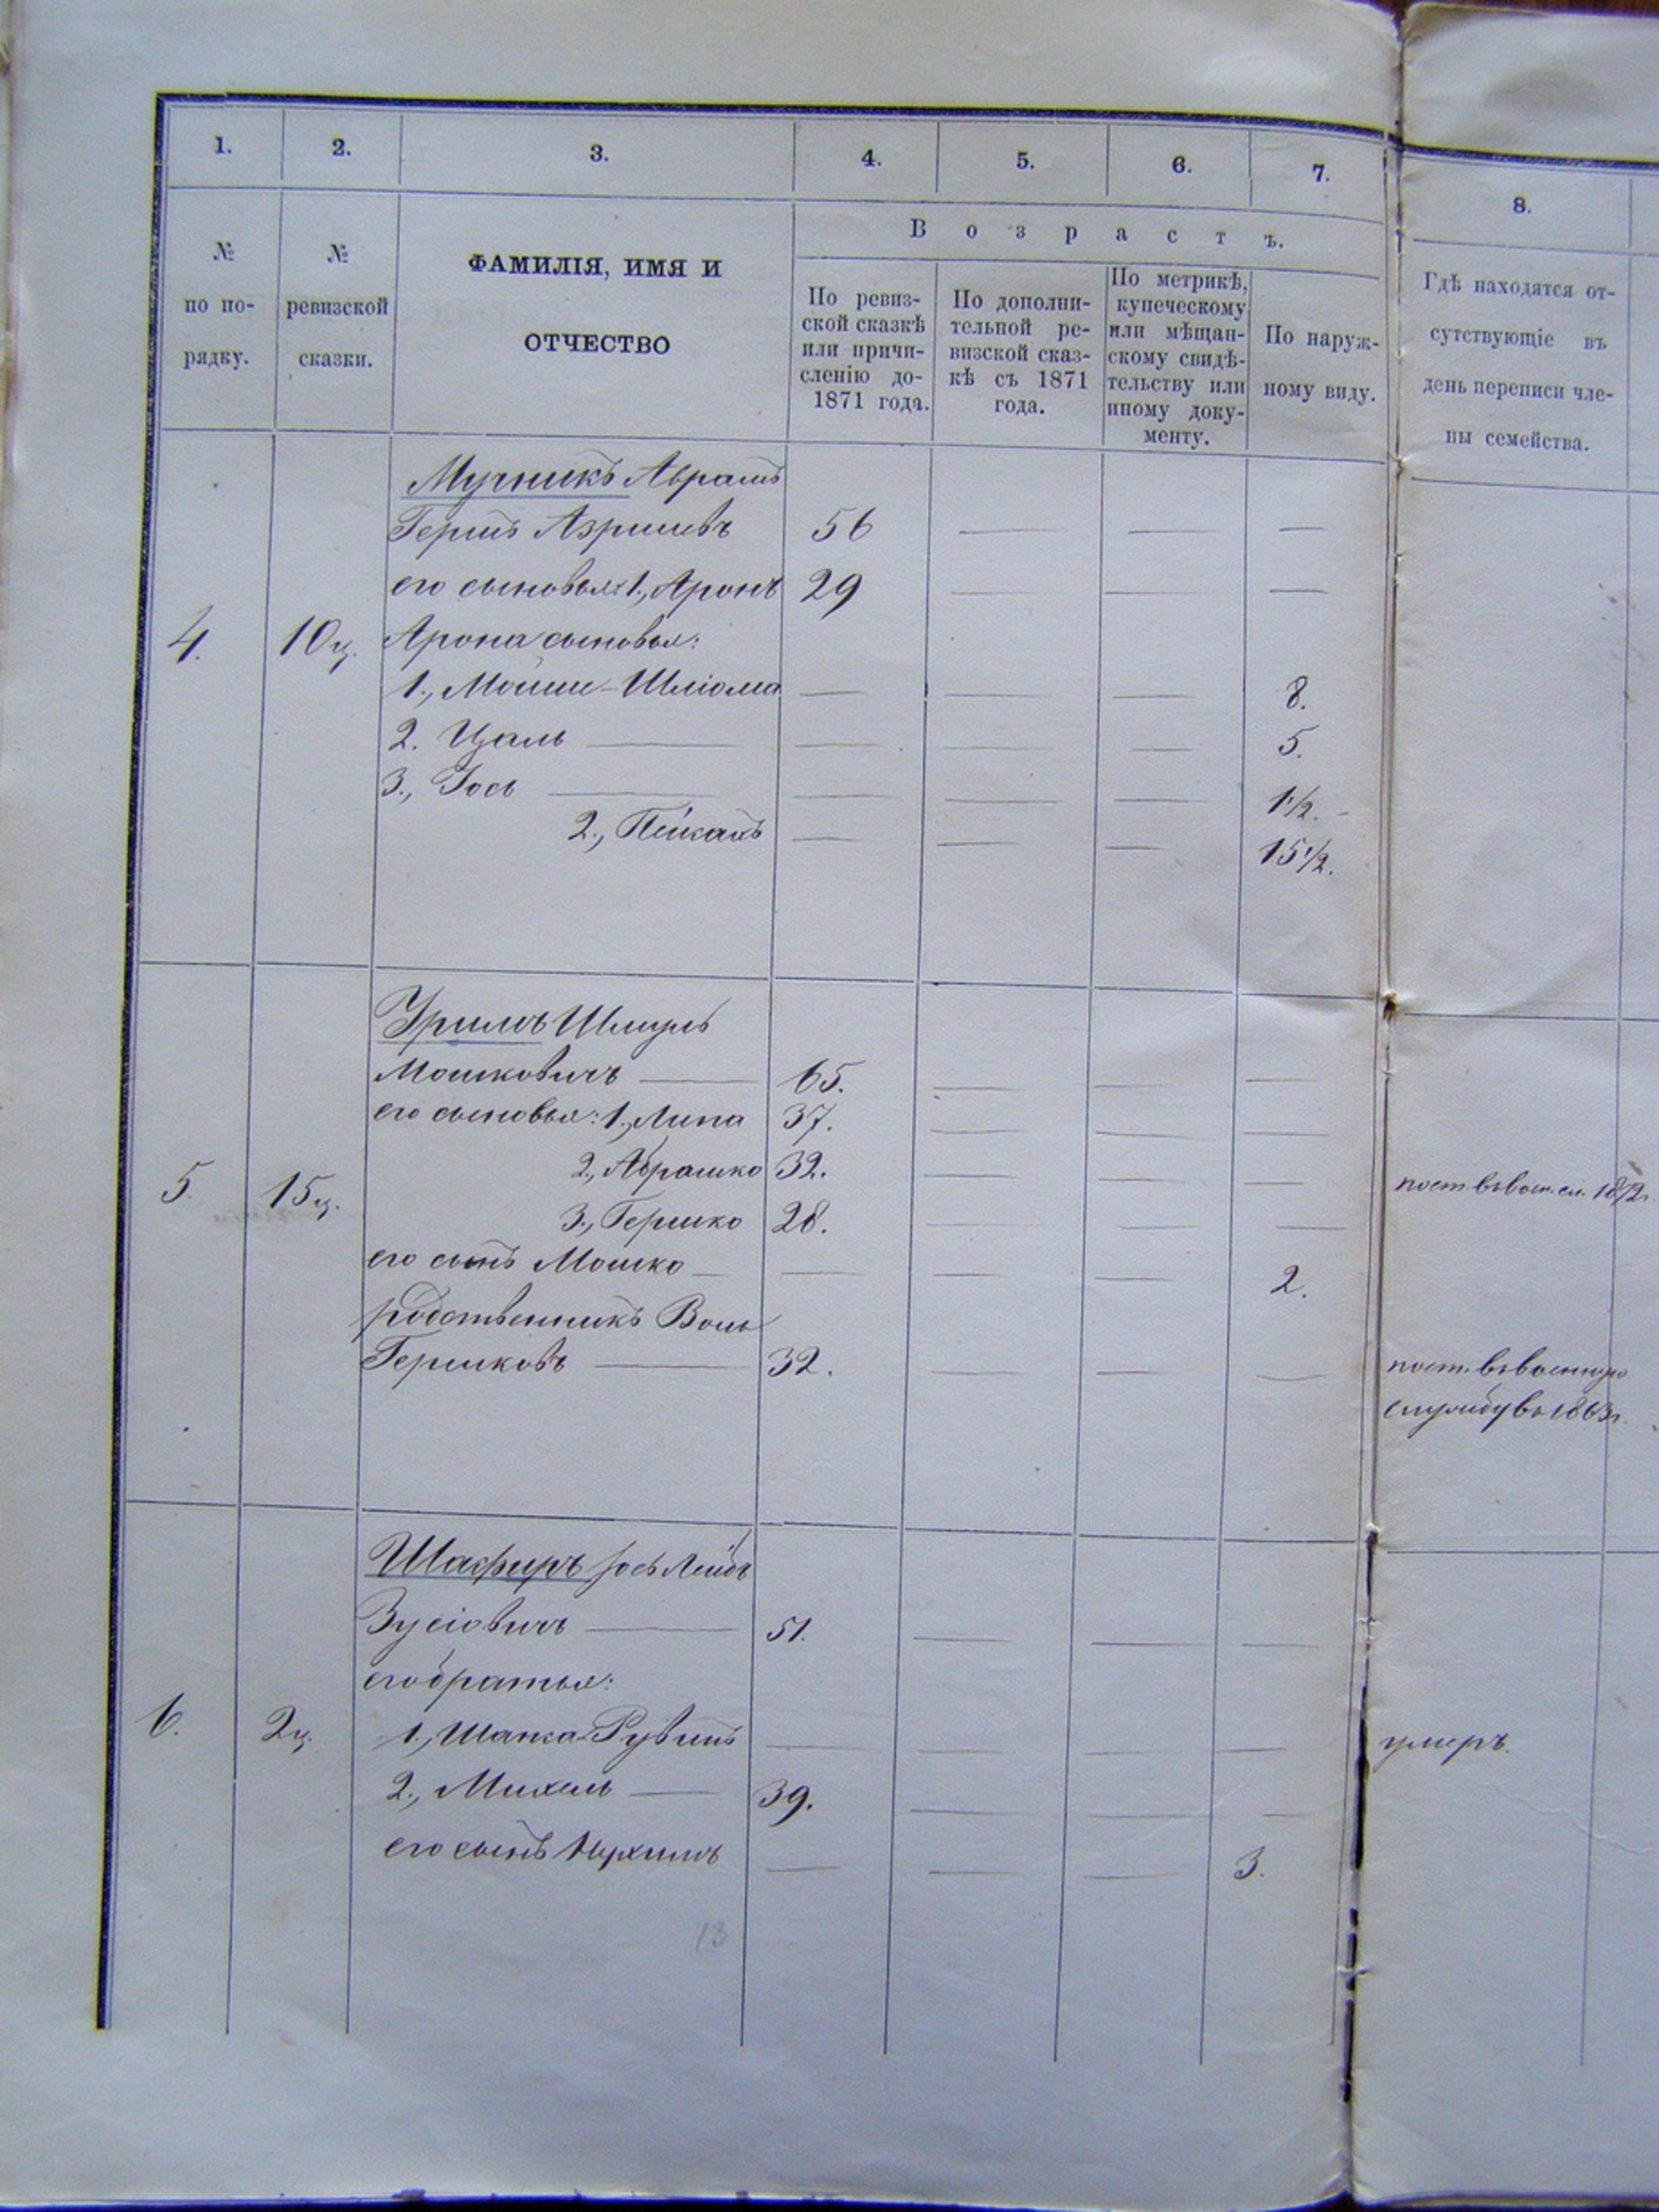 1. 2. 3. 4. 5. 6. 7. 8.
№
по по-
рядку.
№
ревизской
сказки.
ФАМИЛІЯ, ИМЯ И
ОТЧЕСТВО
Возрастъ.
По ревиз-
ской сказкѣ
или причи-
сленію до-
1871 года.
По дополни-
тельной ре-
визской сказ-
кѣ съ 1871
года.
По метрикѣ,
купеческому
или мѣщан-
скому свидѣ-
тельству или
иному доку-
менту.
По наруж-
ному виду.
Гдѣ находятся от-
сутствующіе въ
день переписи чле-
ны семейства.
Мучникъ Аврамъ
Гершъ Азрилевъ 56 — — —
его сыновья: 1., Аронъ 29 — — —
4. 10ц. Арона сыновья:
1., Мойше-Шліома — — — 8.
2. Цаль — — — — 5.
3., Іось — — — — 1½.
2., Пейсахъ — — — 15½.
Шмуль
Мошковичъ — 65. — — —
его сыновья: 1., Липа 37. — — —
2., Абрашко 32. — — — пост. въ воен. сл. 1872г.
5. 15ц. 3., Гершко 28. — — —
его сынъ Мошко — — — — 2.
родственникъ Воль
Гершковъ — 32. — — — пост. въ военную
службу въ 1863г.
Шафиръ Іось Лейбъ
Зусіовичъ — 51. — — —
его братья:
6. 2ц. 1., Шапса-Рувинъ — — — — умеръ.
2., Михель — 39. — — —
его сынъ Нухимъ — — — 3.
13